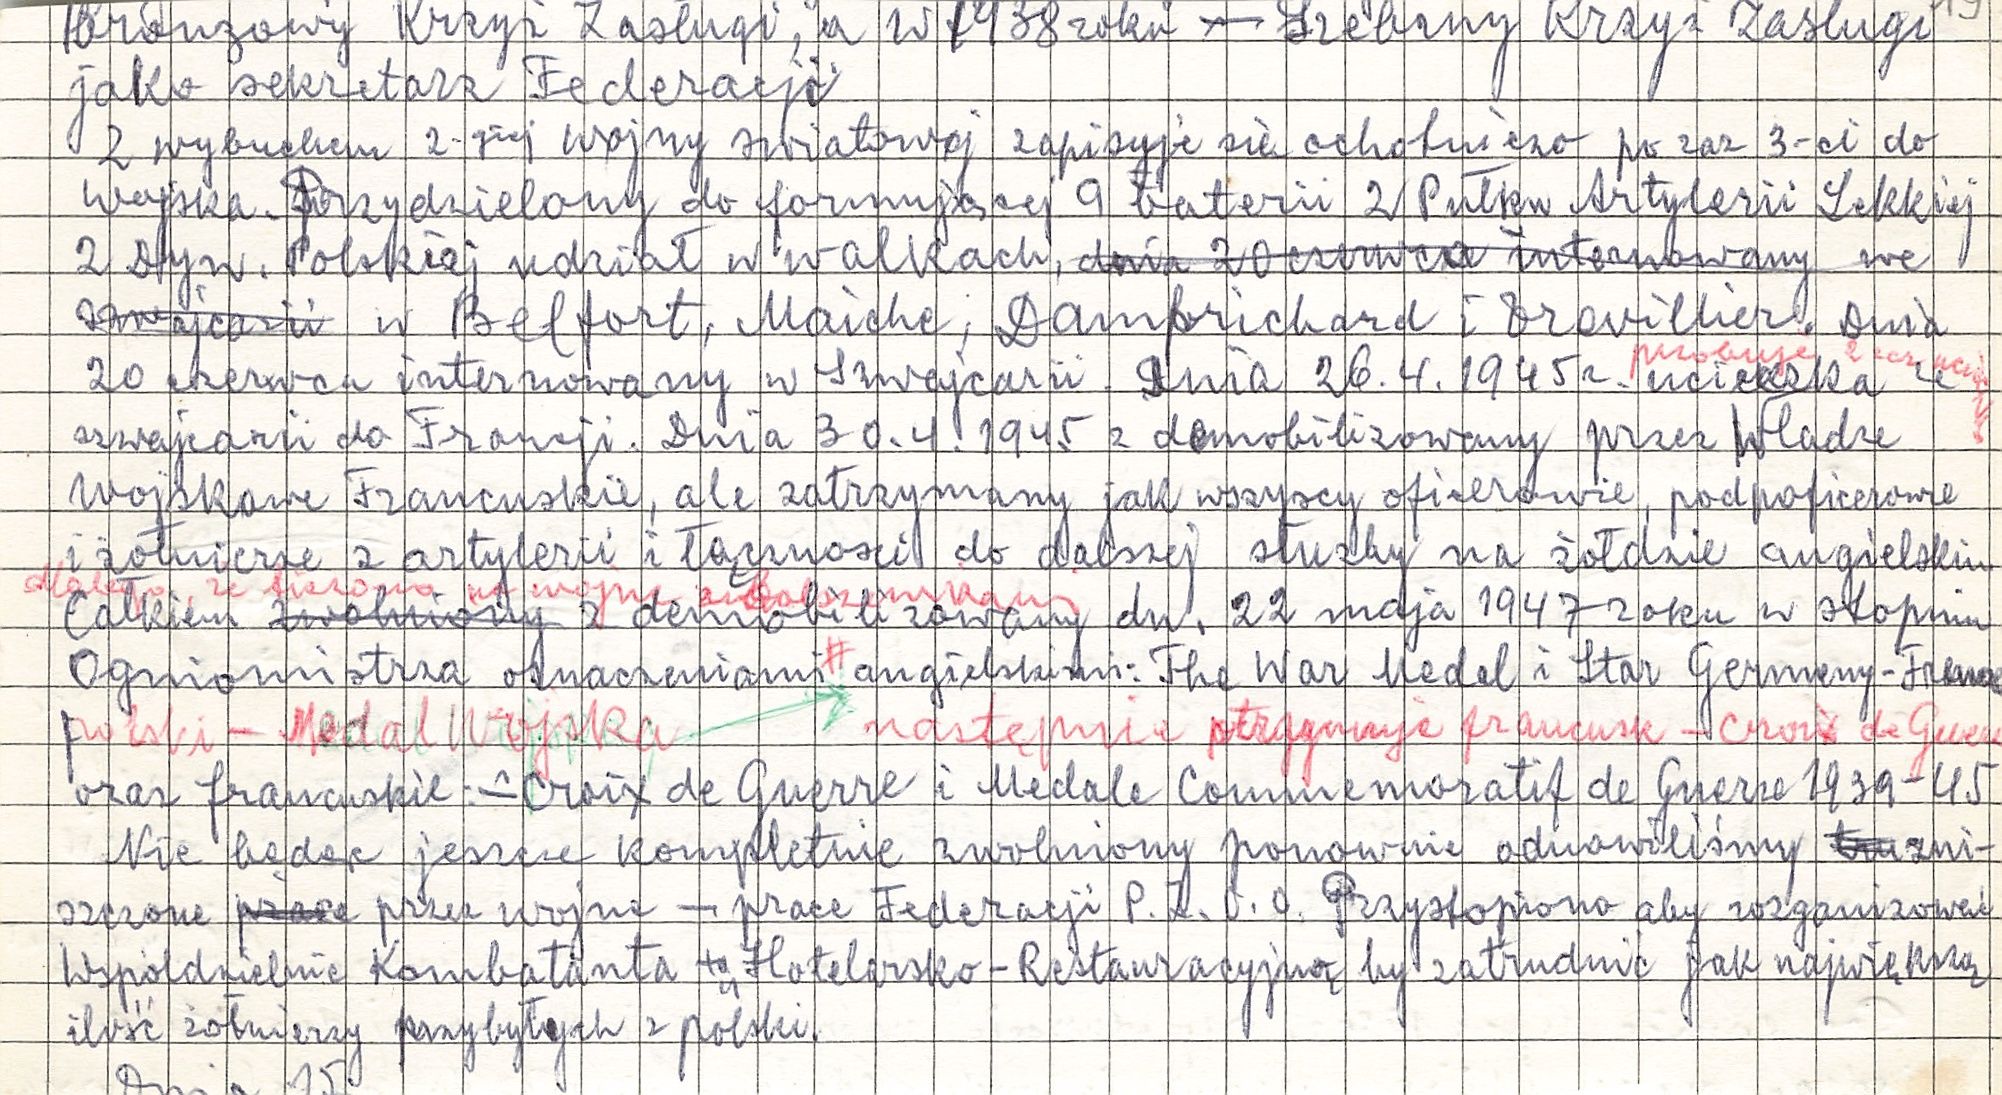 Bronzowy Krzyż Zasługi, a w 1938 roku — Srebrny Krzyż Zasługi
jako sekretarz Federacji
Z wybuchem 2-giej wojny światowej zapisyje się ochotniczo po raz 3-ci do
wojska. Przydzielony do formującej 9 baterii 2 Pułku Artylerii Lekkiej
2 Dyw. Polskiej udział w walkach, dnia 20 czerwca internowany we
szwajcarii w Belfort, Maiche, Damprichard i Trevillier. Dnia
20 czerwca internowany w Szwajcarii. Dnia 26.4.1945 r. ucieczka ze
szwajcarii do Francji. Dnia 30.4.1945 z demobilizowany przez Władze
Wojskowe Francuskie, ale zatrzymany jak wszyscy oficerowie, podpoficerowie
i żołnierze z artylerii i łączności do dalszej służby na żołdzie angielskim
że liczono na wojnę z Bolszewikami
Całkiem zwolniony z demobilizowany dn. 22 maja 1947 roku w stopniu
Ogniomistrza odznaczeniami # angielskimi: The War Medal i Star Germany-France
polski — Medal Wojska następnie otrzymuje francusk — Croix de Guerre
oraz francuskie: — Croix de Guerre i Medale Commemoratif de Guerre 1939-45
Nie będąc jeszcze kompletnie zwolniony ponownie odnowiliśmy zni-
szczone prace przez wojne — prace Federacji P.Z.O.O. Przystopiono aby zorganizować
Wspóldzielnie Kombatanta Hotelarsko-Restauracyjną by zatrudnić jak największą
ilość żołnierzy przybyłych z polski.
Dnia 15